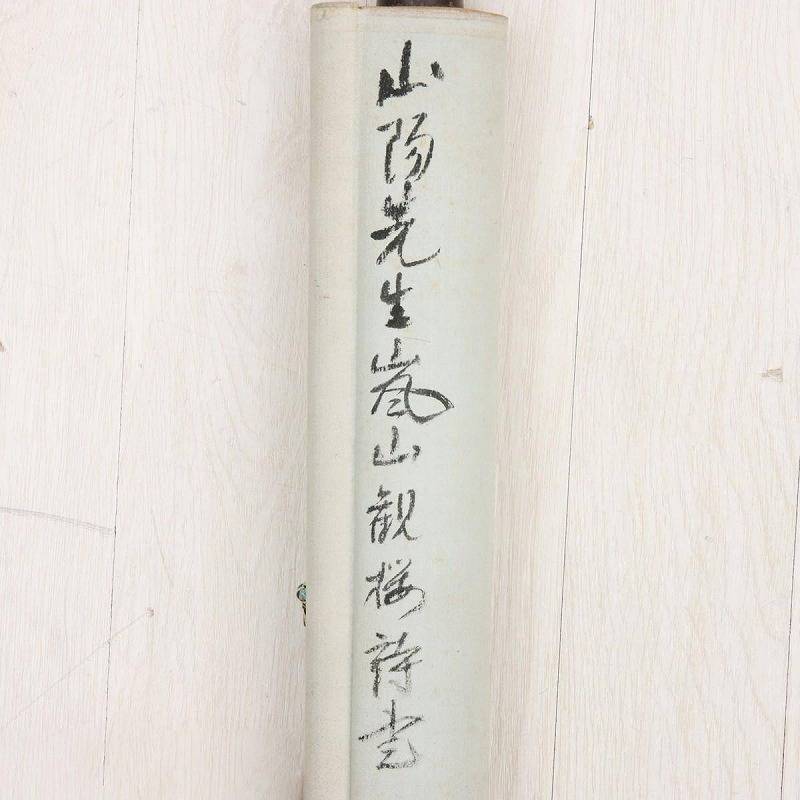 山陽先生嵐山観桜詩書